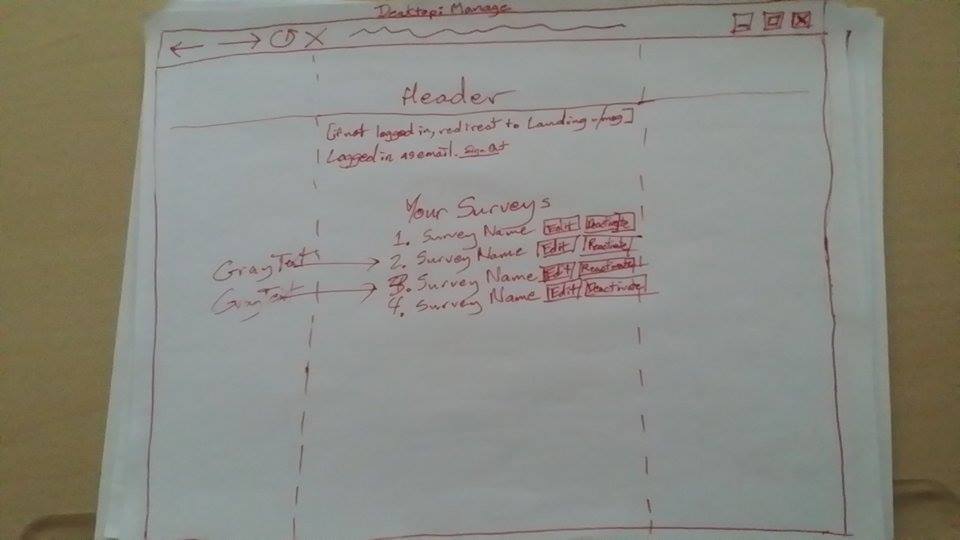 Desktop: Manage
Header
[if not logged in, redirect to Landing w/msg]
Logged in as email. Sign Out
Your Surveys
1. Survey Name Edit Deactivate
GrayText 2. Survey Name Edit Reactivate
GrayText 3. Survey Name Edit Reactivate
4. Survey Name Edit Deactivate